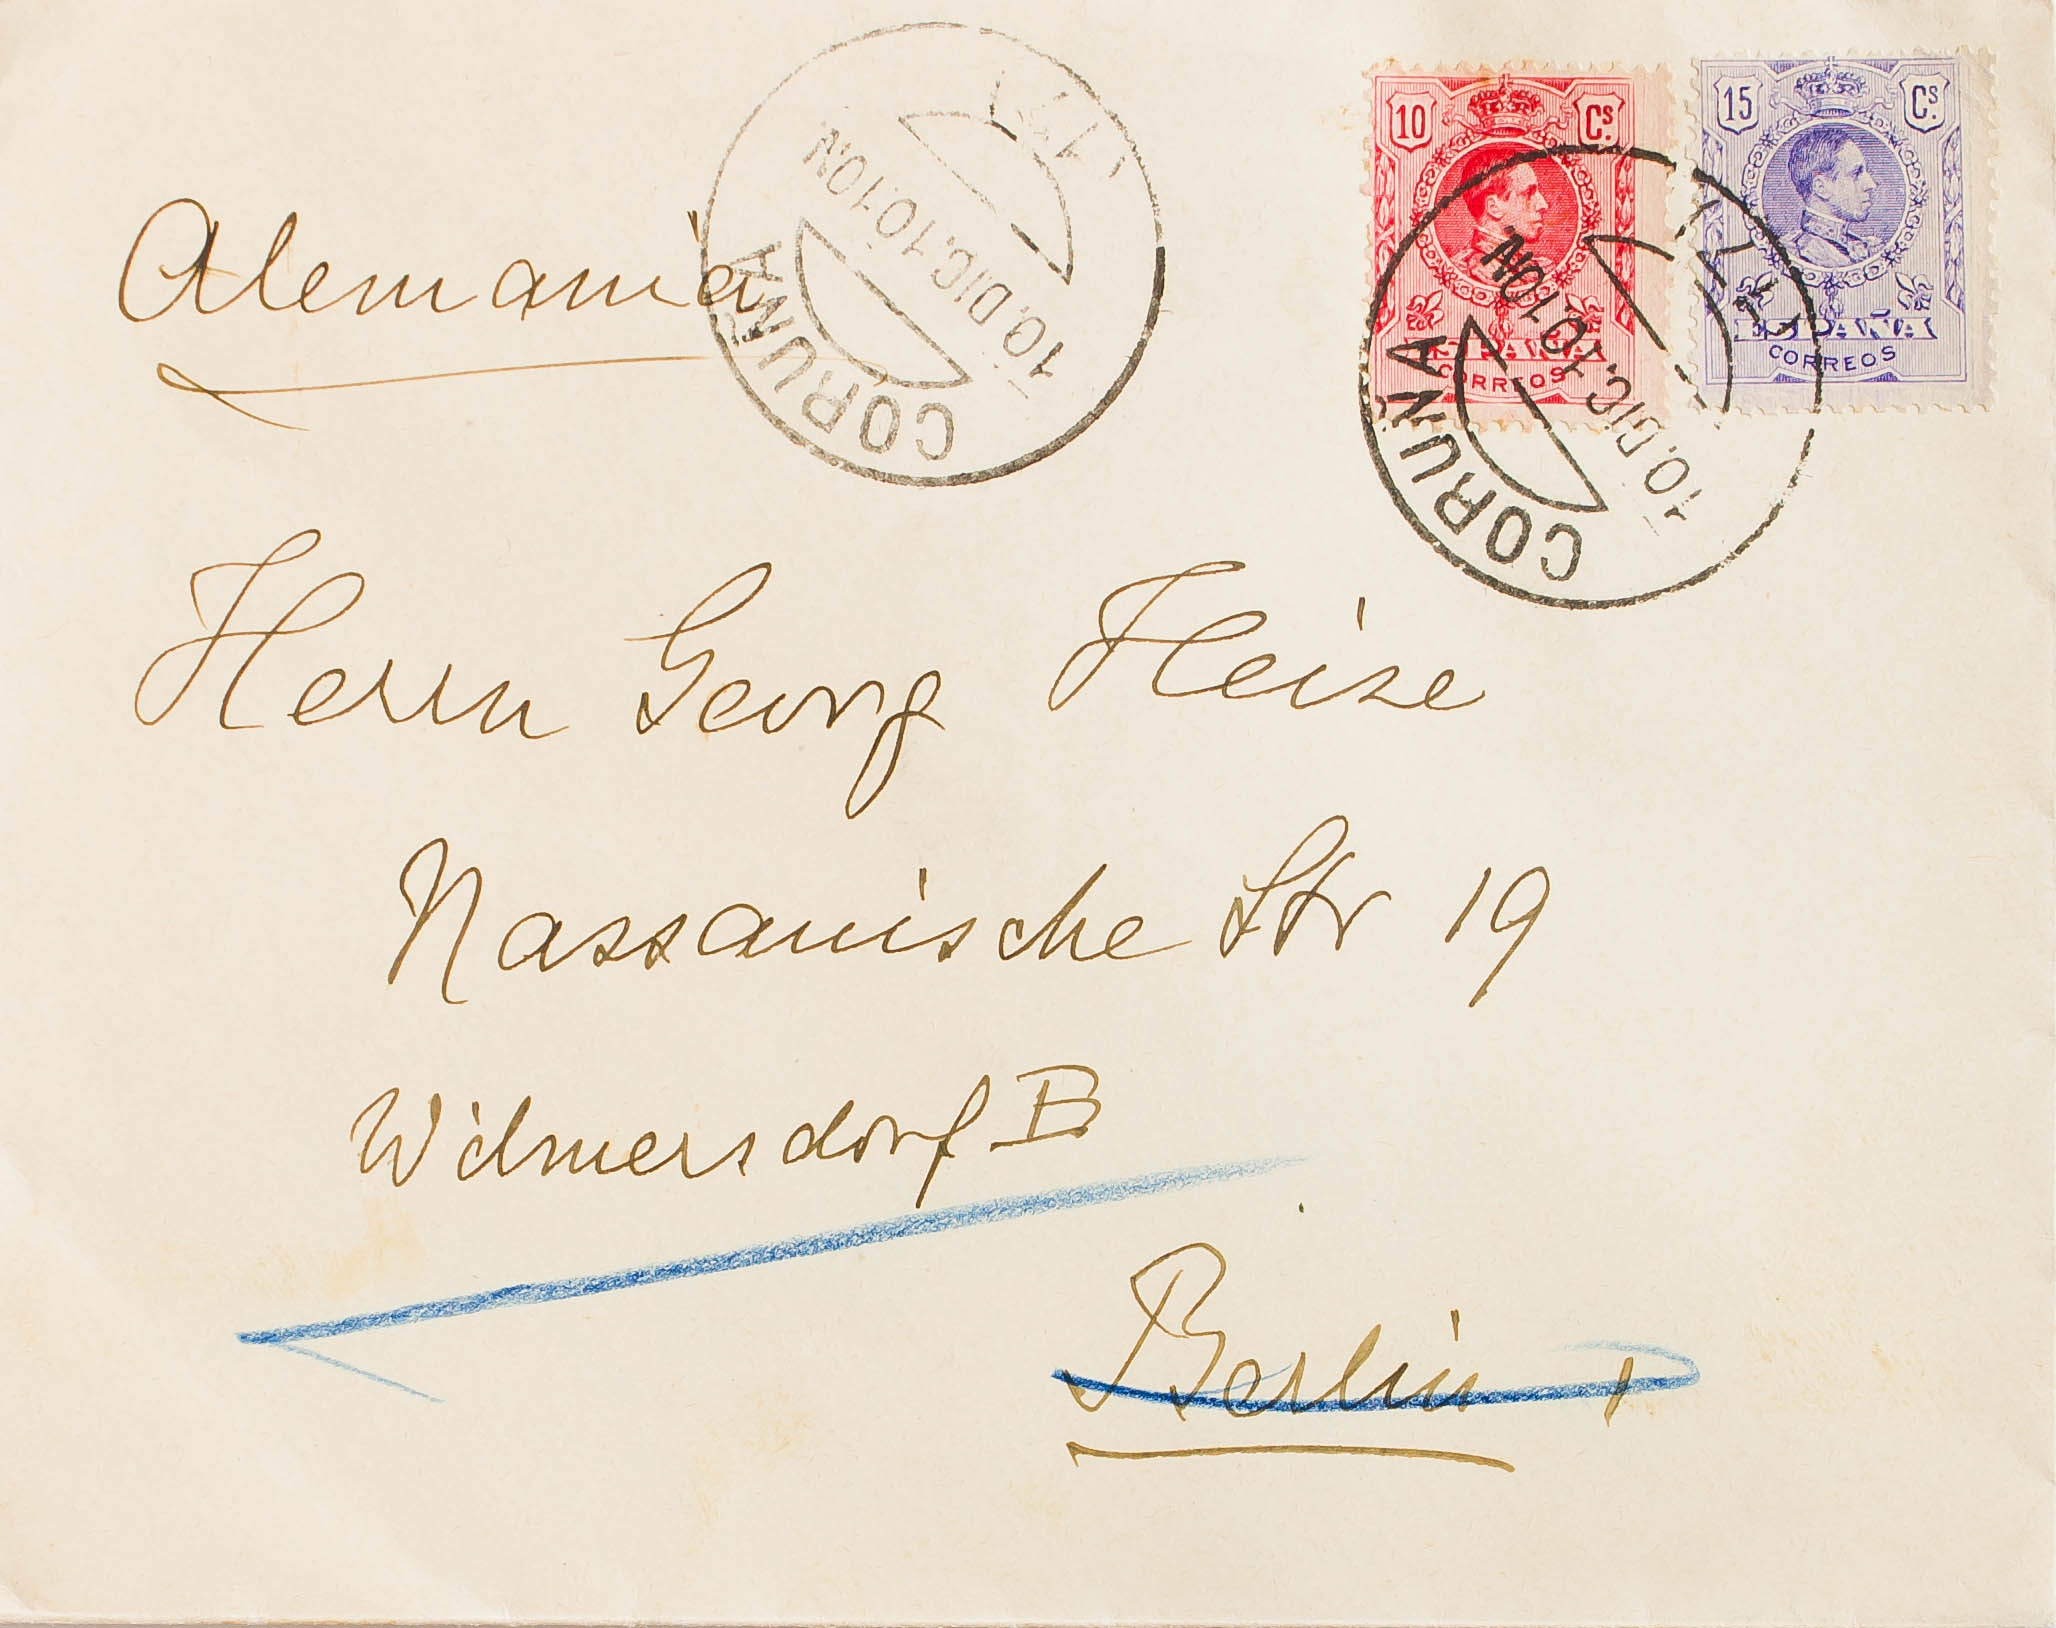 10 Cs.
ESPAÑA
CORREOS
15 Cs.
ESPAÑA
CORREOS
CORUÑA
10.DIC.10.10N
CORUÑA
10.DIC.10.10N
Alemania
Herrn Georg Heize
Nassauische Str 19
Wilmersdorf B
Berlin